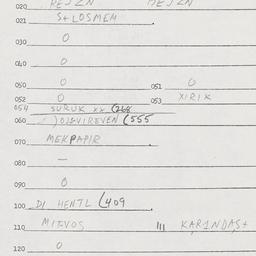 020 REJZN MEJZN
021 S+LOSMEM
030 0
040 0
050 0 051 0
052 0 053 XIRIK
054 SURUK xx
060 (555
070 MEKPAPIR
080 —
090 0
100 DI HENTL (409
110 MITVOS 111 KARANDAS+
120 0